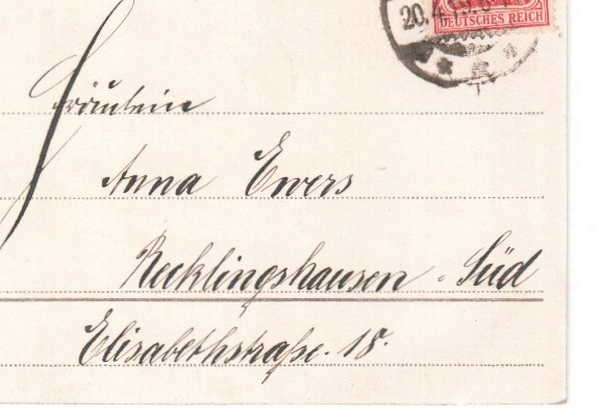 20.4.
DEUTSCHES REICH
Fräulein
Anna Ewers
Recklingshausen-Süd
Elisabethstraße. 18.